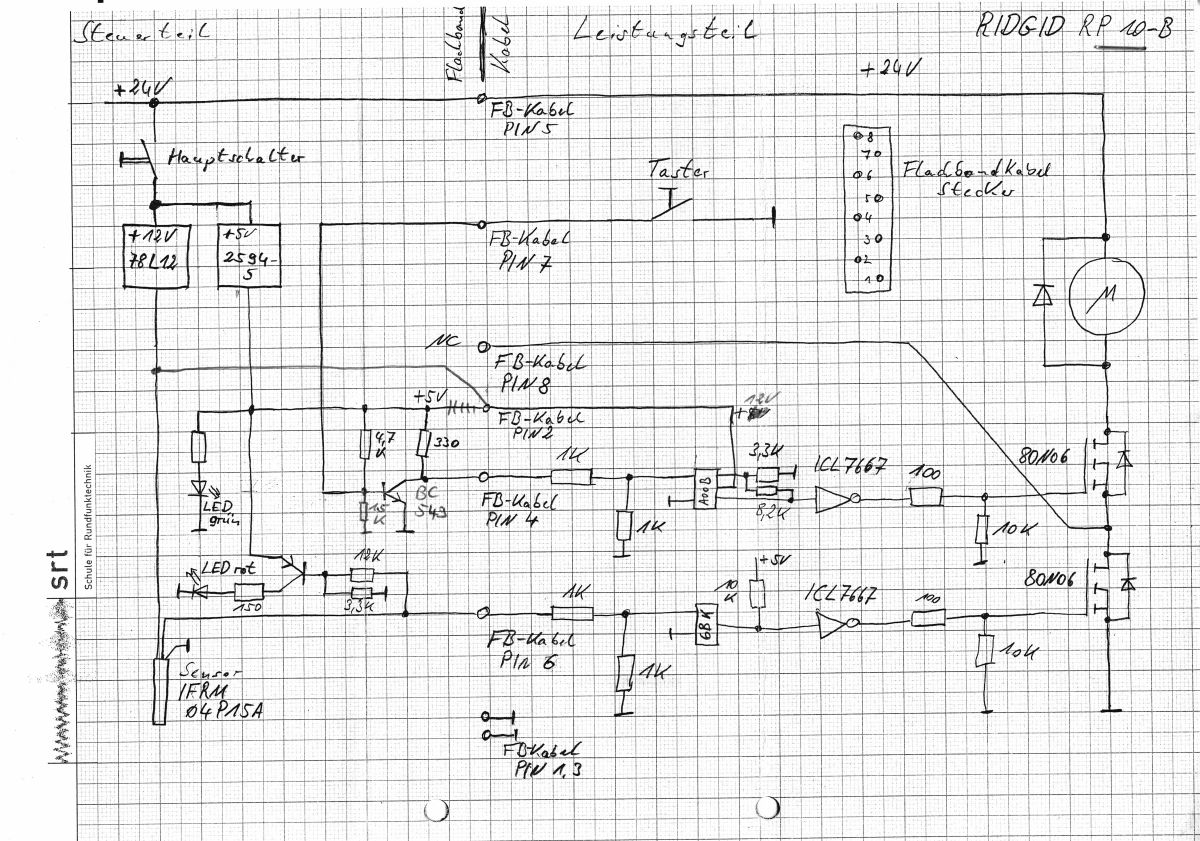 Steuerteil
Flachband
Kabel
Leistungsteil
RIDGID RP 10-B
+24V
+24V
FB-Kabel
PIN 5
Hauptschalter
Taster
Flachbandkabel
Stecker
8
7
6
5
4
3
2
1
+12V
78L12
+5V
2594-
5
FB-Kabel
PIN 7
M
NC
FB-Kabel
PIN 8
+5V
12V
FB-Kabel
PIN 2
4,7
K
330
1K
3,3K
ICL7667
100
80N06
LED
grün
15
K
BC
543
FB-Kabel
PIN 4
1K
8,2K
10K
LED rot
12K
+5V
150
3,3K
1K
10
K
ICL7667
100
80N06
FB-Kabel
PIN 6
68K
1K
10K
Sensor
IFRM
04P15A
FB-Kabel
PIN 1,3
srt
Schule für Rundfunktechnik